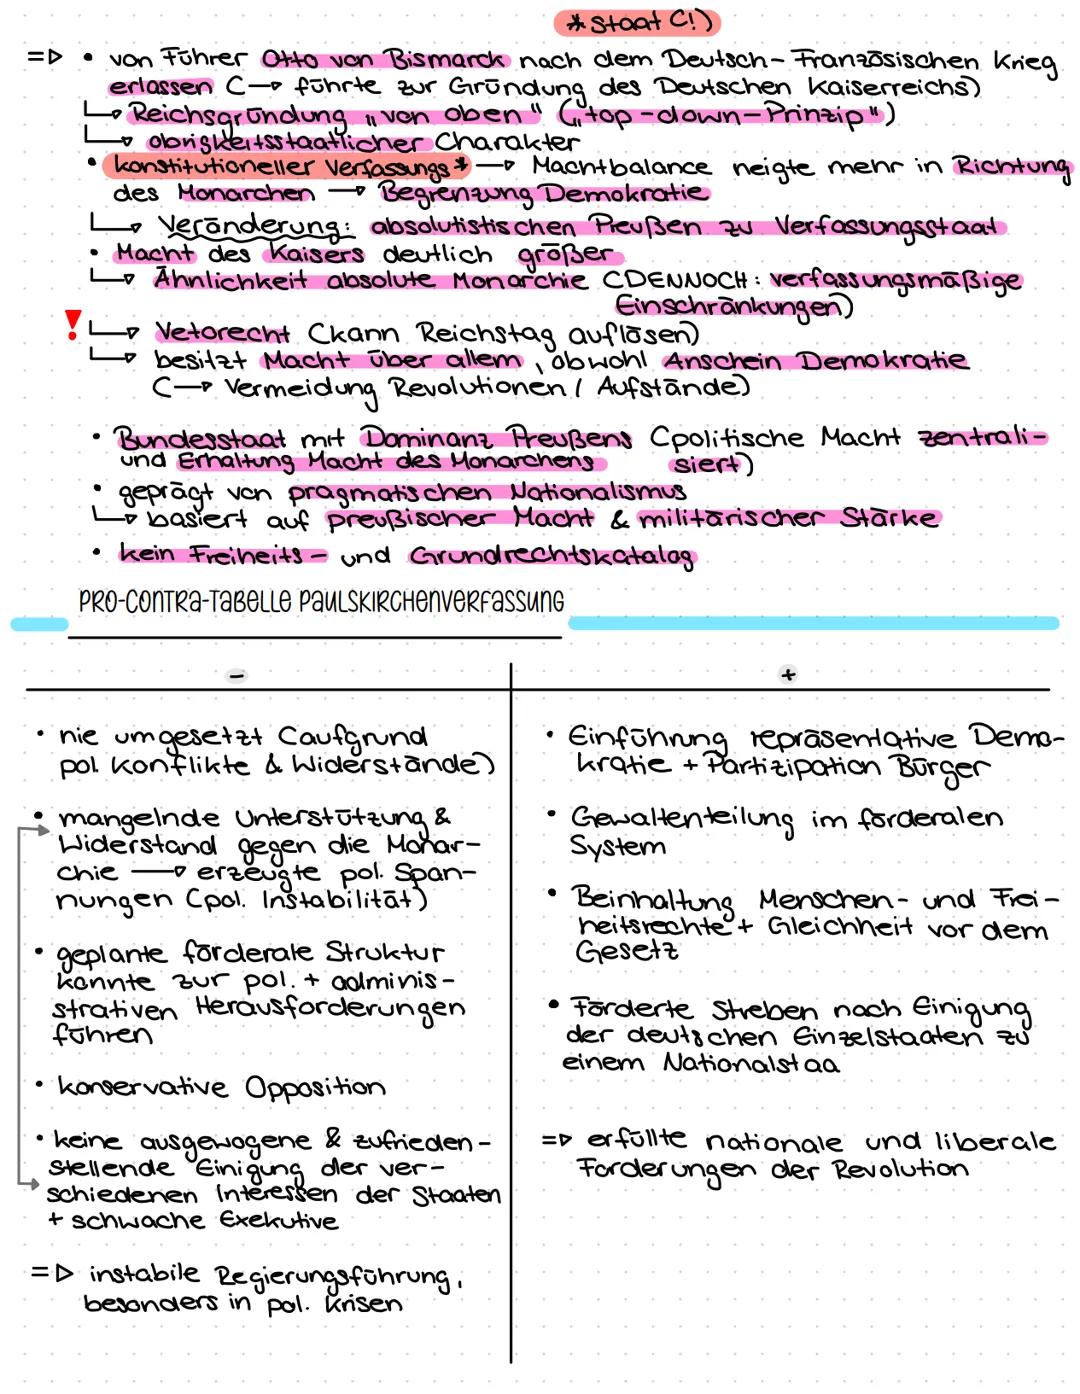 * Staat (!)
=> • von Führer Otto von Bismarck nach dem Deutsch-Französischen Krieg
erlassen (→ führte zur Gründung des Deutschen Kaiserreichs)
↳ Reichsgründung „von oben" („top-down-Prinzip")
↳ obrigkeitsstaatlicher Charakter
• konstitutioneller Verfassungs* → Machtbalance neigte mehr in Richtung
des Monarchen → Begrenzung Demokratie
↳ Veränderung: absolutistischen Preußen zu Verfassungsstaat
• Macht des Kaisers deutlich größer
↳ Ähnlichkeit absolute Monarchie (DENNOCH: verfassungsmäßige
Einschränkungen)
! ↳ Vetorecht (kann Reichstag auflösen)
↳ besitzt Macht über allem, obwohl Anschein Demokratie
(→ Vermeidung Revolutionen / Aufstände)
• Bundesstaat mit Dominanz Preußens (politische Macht zentrali-
und Erhaltung Macht des Monarchens siert)
• geprägt von pragmatischen Nationalismus
↳ basiert auf preußischer Macht & militärischer Stärke
• kein Freiheits- und Grundrechtskatalog
PRO-CONTRA-TABELLE PAULSKIRCHENVERFASSUNG
-
• nie umgesetzt (aufgrund
pol. Konflikte & Widerstände)
• mangelnde Unterstützung &
Widerstand gegen die Monar-
chie → erzeugte pol. Span-
nungen (pol. Instabilität)
• geplante förderale Struktur
konnte zur pol. + adminis-
strativen Herausforderungen
führen
• konservative Opposition
• keine ausgewogene & zufrieden-
stellende Einigung der ver-
schiedenen Interessen der Staaten
+ schwache Exekutive
=> instabile Regierungsführung,
besonders in pol. Krisen
+
• Einführung repräsentative Demo-
kratie + Partizipation Bürger
• Gewaltenteilung im förderalen
System
• Beinhaltung Menschen- und Frei-
heitsrechte + Gleichheit vor dem
Gesetz
• Förderte Streben nach Einigung
der deutschen Einzelstaaten zu
einem Nationalstaa
=> erfüllte nationale und liberale
Forderungen der Revolution